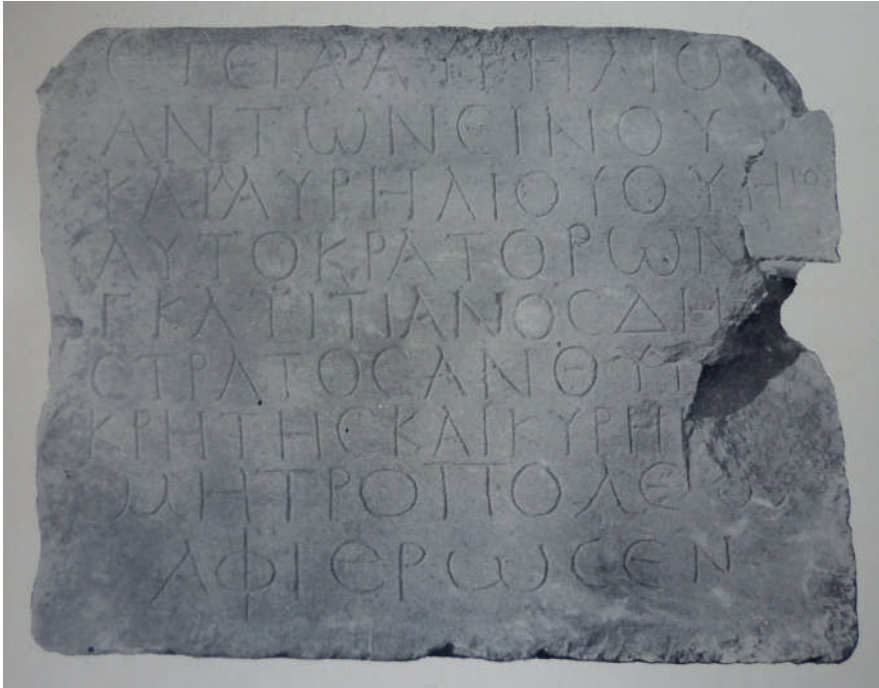 ϹΤΕΙΑ ΑΥΡΗΛΙΟ
ΑΝΤΩΝΕΙΝΟΥ
ΚΑΙ ΑΥΡΗΛΙΟΥ ΟΥΗΡΟ
ΑΥΤΟΚΡΑΤΟΡΩΝ
Γ ΚΑΤΙΤΙΑΝΟϹ ΔΗ
ϹΤΡΑΤΟϹ ΑΝΘΥΠ
ΚΡΗΤΗϹ ΚΑΙ ΚΥΡΗ
ΜΗΤΡΟΠΟΛΕΩ
ΑΦΙΕΡΩϹΕΝ